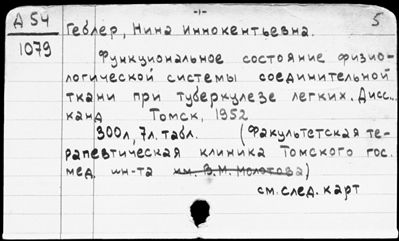 -1-
Д 54
1079
5
Геблер, Нина Иннокентьевна.
Функциональное состояние физио-
логической системы соединительной
ткани при туберкулезе легких. Дисс.
канд Томск, 1952
300л, 7л. табл. (Факультетская те-
рапевтическая клиника Томского гос.
мед ин-та им. В.М. Молотова)
см. след. карт